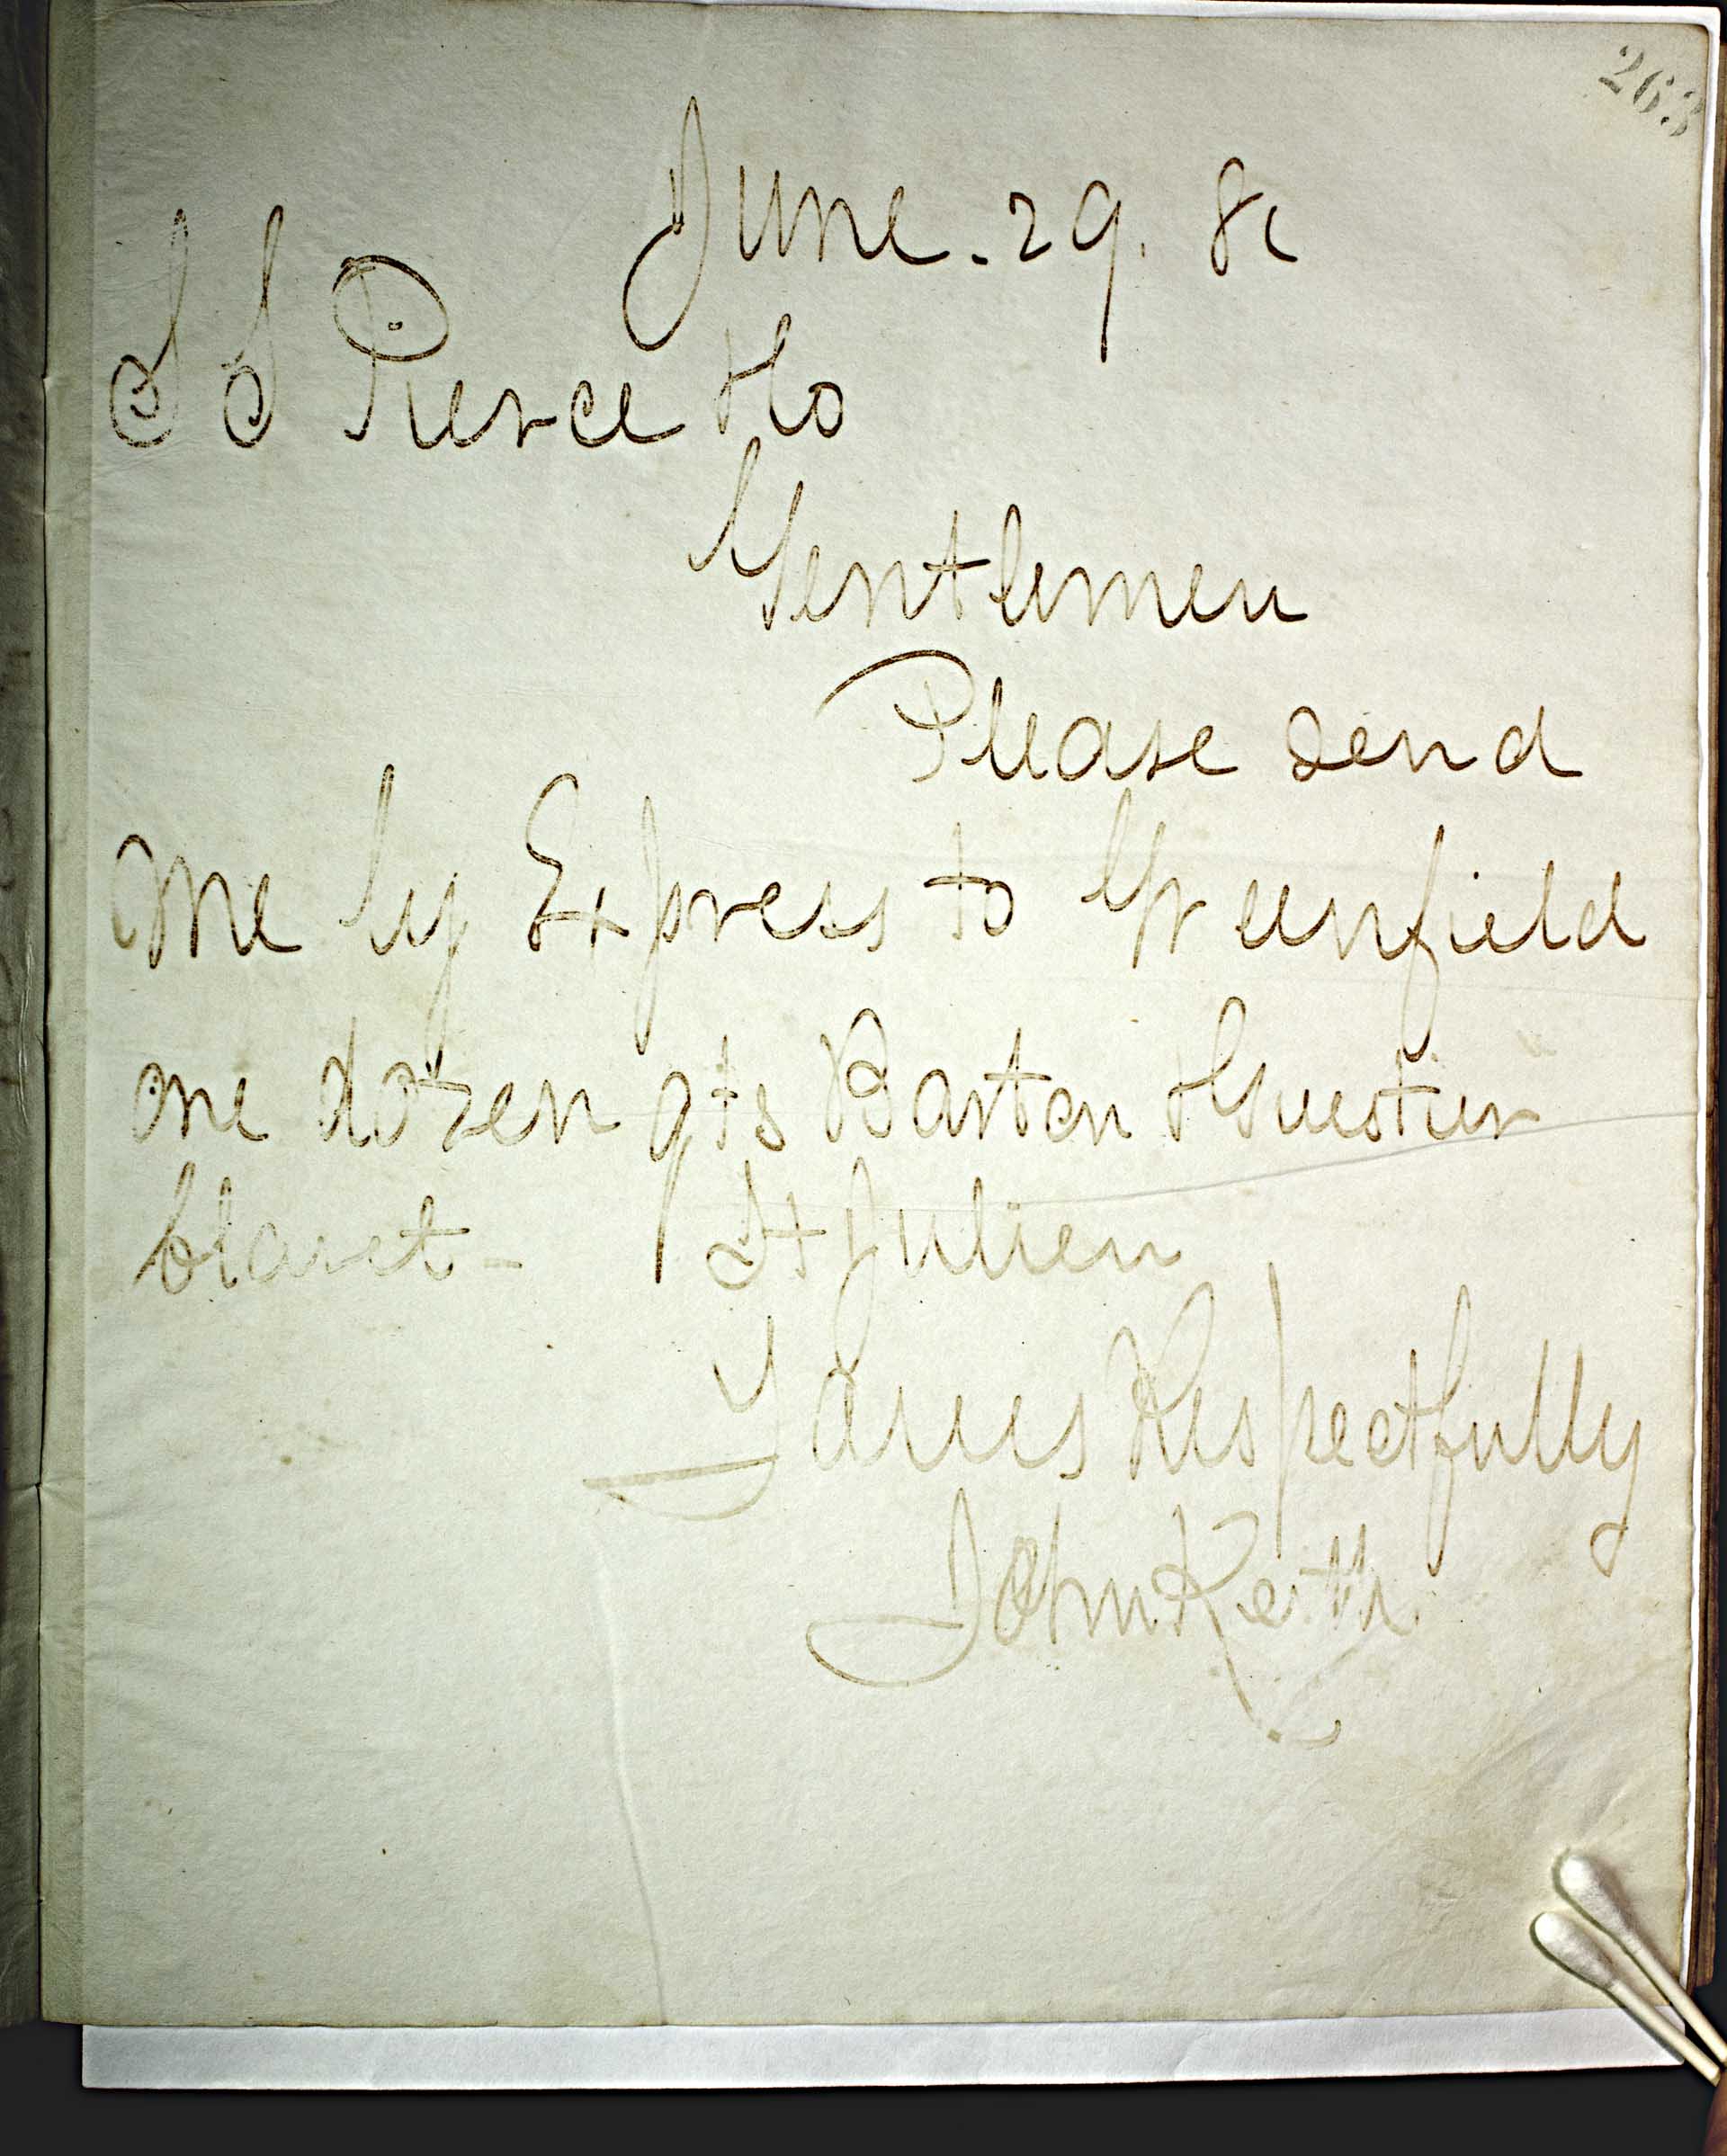 263
June. 29. 81
S S Pierce & Co
Gentlemen
Please send
me by Express to Greenfield
one dozen qts Barton & Guestier
Claret - St Julien
Yours Respectfully
John Keith